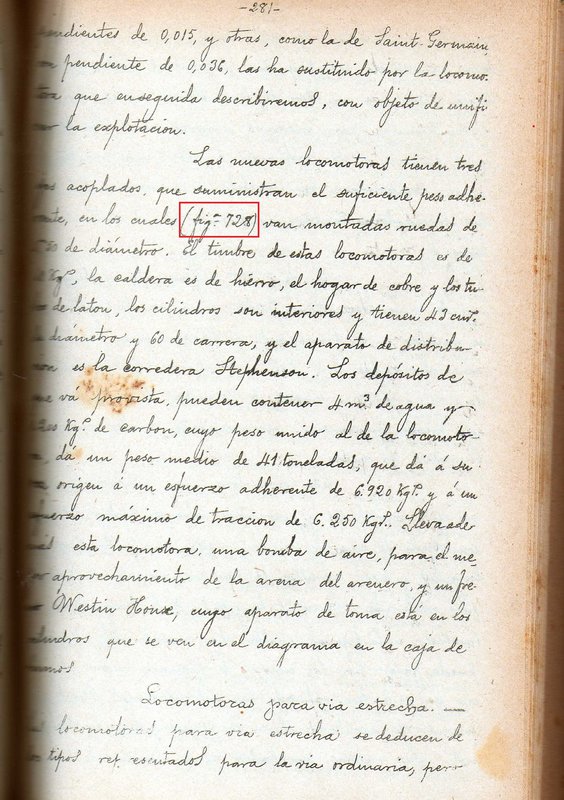 -281-
pendientes de 0,015, y otras, como la de Saint-Germain,
pendiente de 0,036, las ha sustituido por la locomo-
que enseguida describiremos, con objeto de unifi
la explotación.
Las nuevas locomotoras tienen tres
acoplados, que suministran el suficiente peso adhe-
en los cuales (fig.ª 728) van montadas ruedas de
de diámetro. El timbre de estas locomotoras es de
Kgˢ, la caldera es de hierro, el hogar de cobre y los tu-
de laton, los cilindros son interiores y tienen 43 cmˢ.
diametro y 60 de carrera, y el aparato de distribu-
es la corredera Stephenson. Los depósitos de
vá provista, pueden contener 4 m³. de agua y
Kgˢ. de carbon, cuyo peso unido al de la locomoto-
dá un peso medio de 41 toneladas, que dá á su
origen á un esfuerzo adherente de 6.920 Kgˢ. y á un
máximo de traccion de 6.250 Kgˢ.. Lleva ade
esta locomotora, una bomba de aire, para el me-
aprovechamiento de la arena del arenero, y un fre-
Westin House, cuyo aparato de toma está en los
cilindros que se ven en el diagrama en la caja de
Locomotoras para via estrecha. —
locomotoras para via estrecha se deducen de
tipos rep. esentados para la via ordinaria, pero